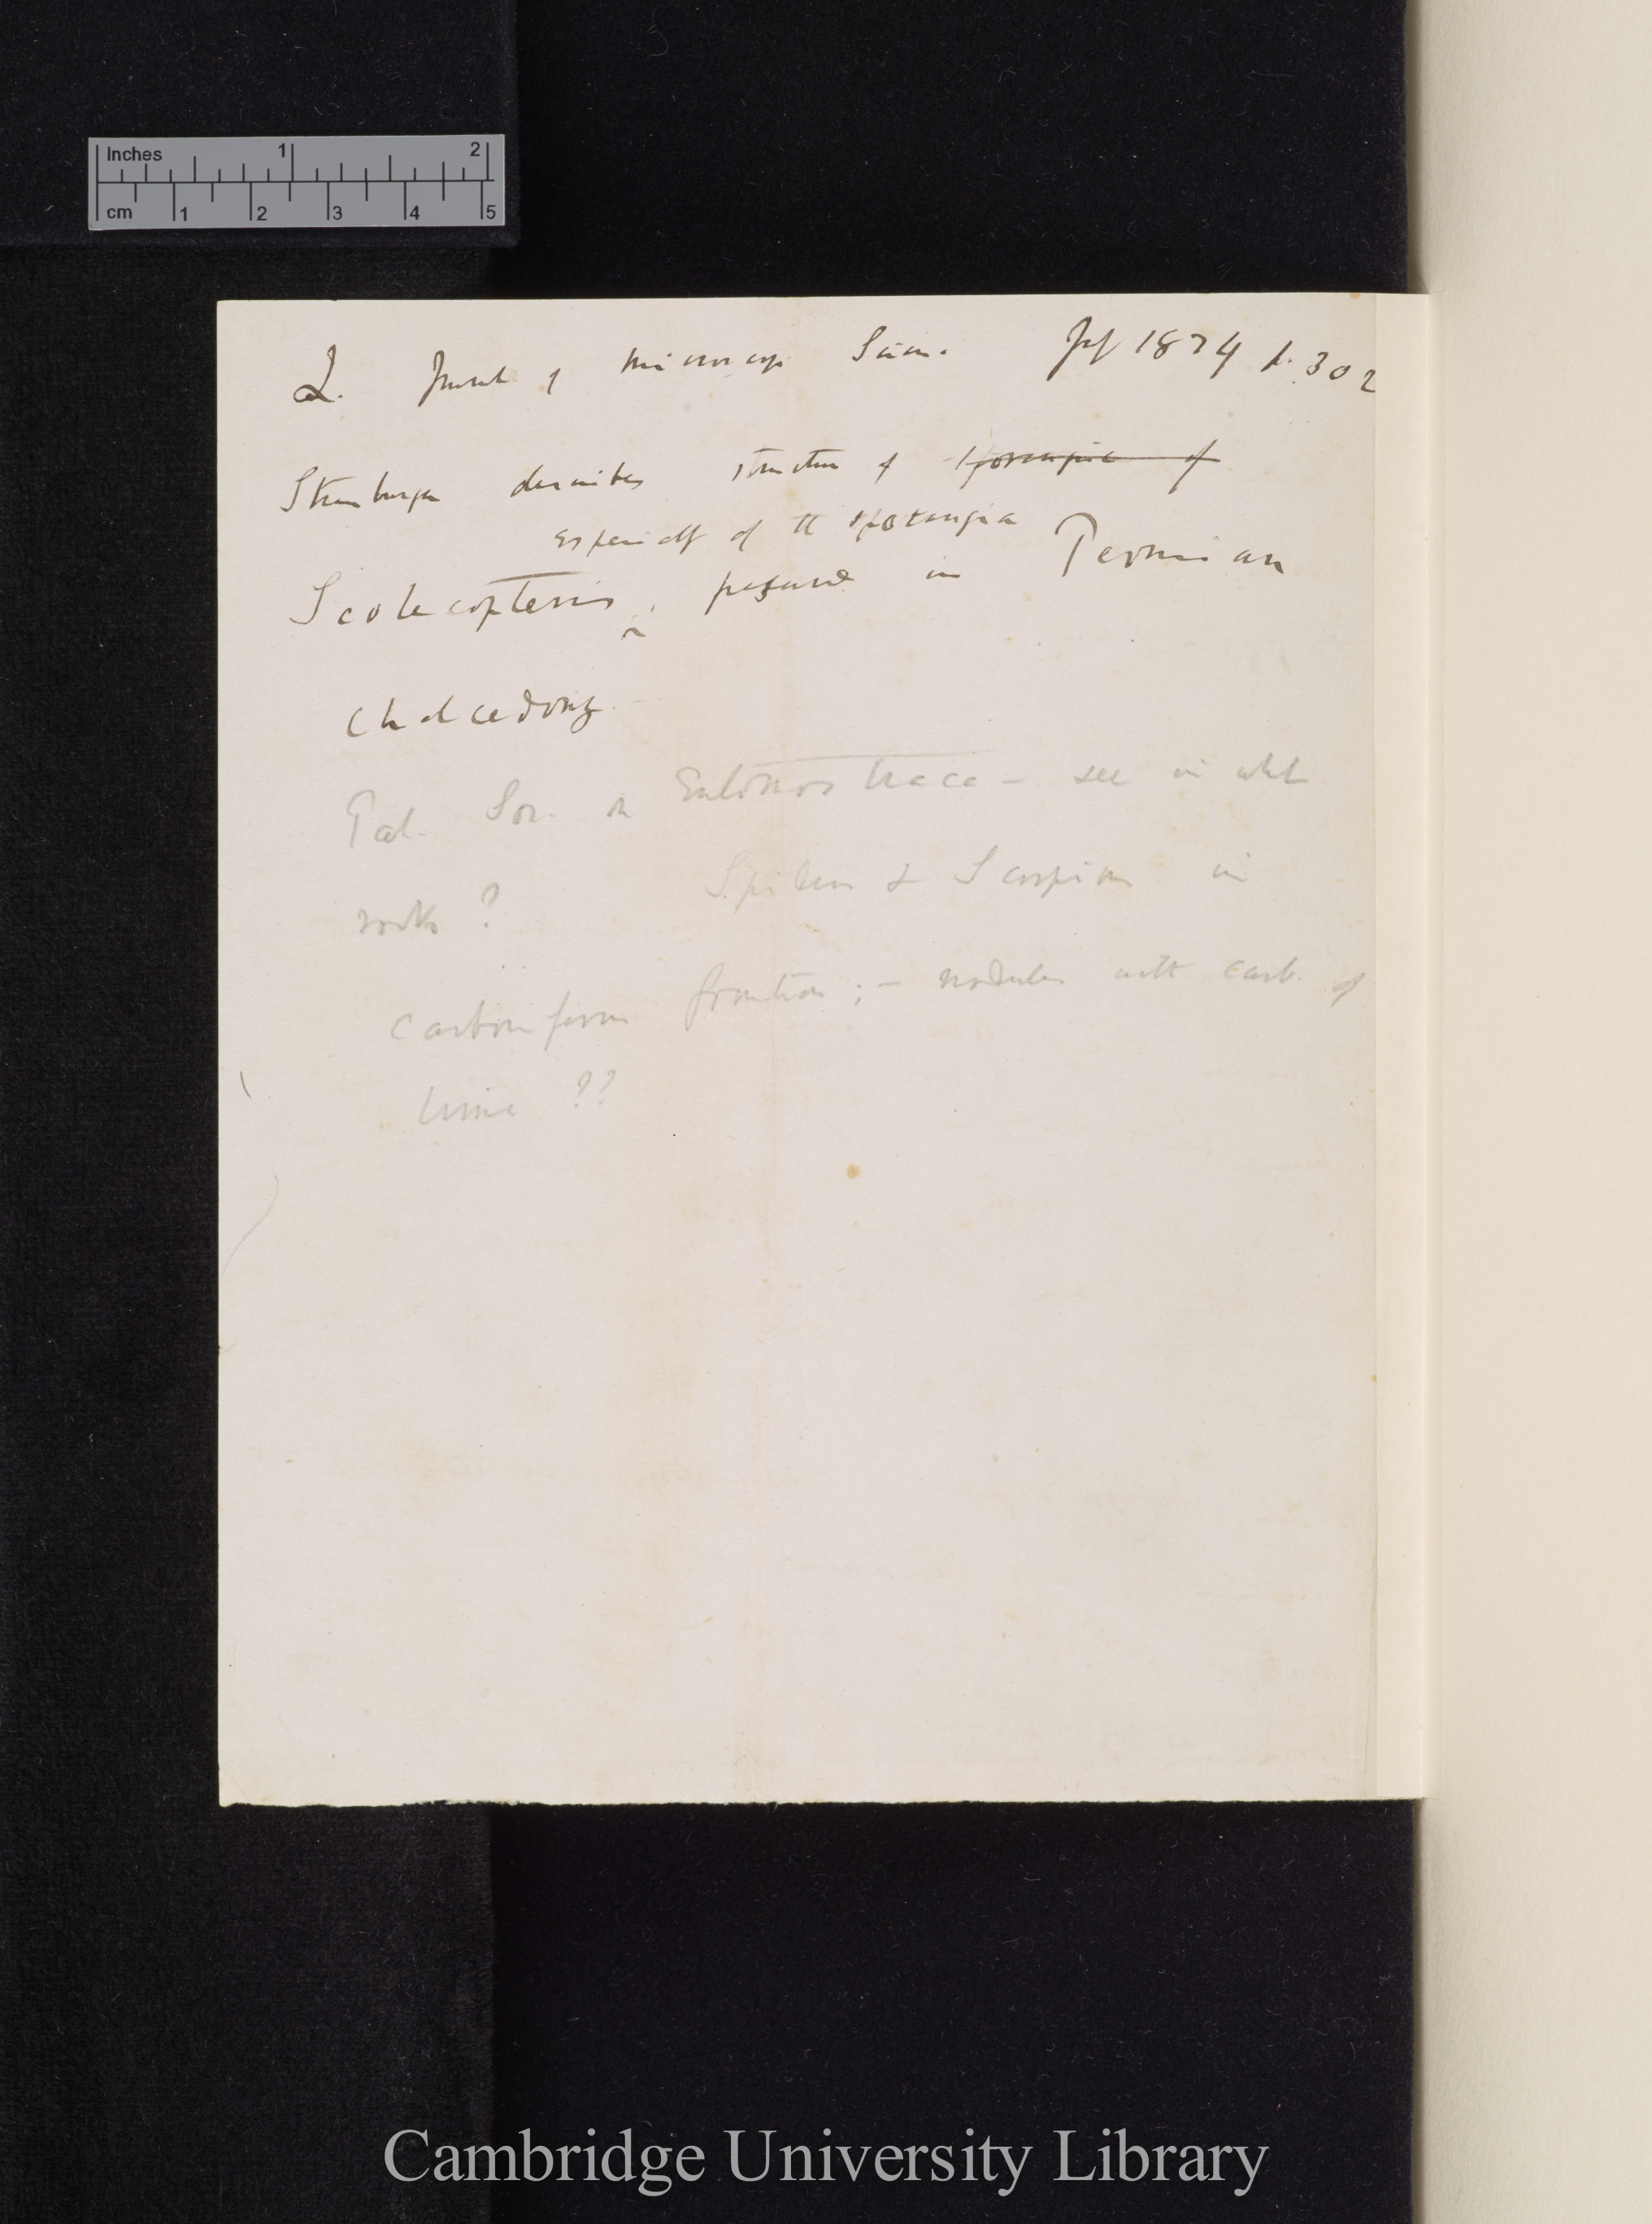 Inches 1 2
cm 1 2 3 4 5
Q. Journal of Microscop. Scien. July 1874 p. 302
Strasburger describes structure of sporangia of
especially of the sporangia
Scolecopteris, preserved in Permian
Chalcedony
Pal. Soc. on Entomostraca — see in what
rocks? Spiders & Scorpions in
Carboniferous formation; — nodules with carb. of
lime ??
Cambridge University Library